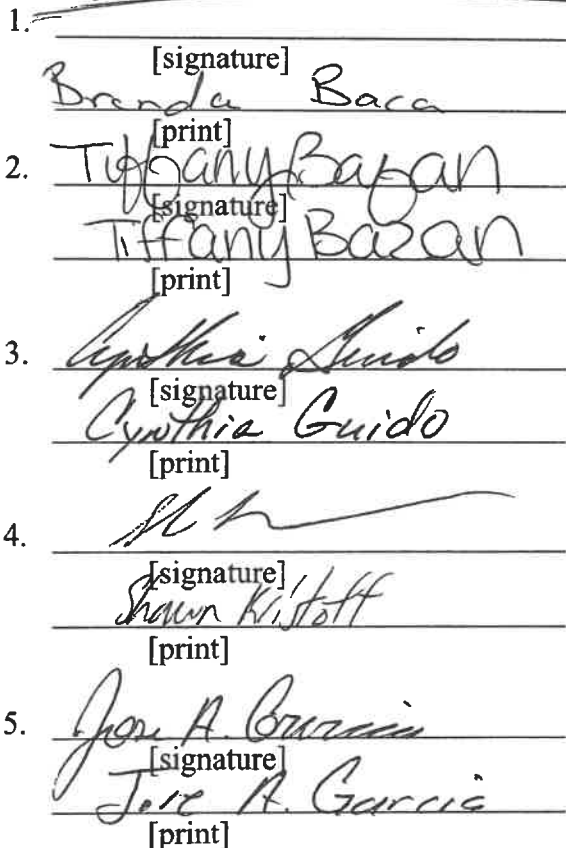 1.
[signature]
Brenda Baca
[print]
2. Tiffany Bazan
[signature]
Tiffany Bazan
[print]
3. Cynthia Guido
[signature]
Cynthia Guido
[print]
4.
[signature]
Shawn Kristoff
[print]
5. Jose A. Garcia
[signature]
Jose A. Garcia
[print]